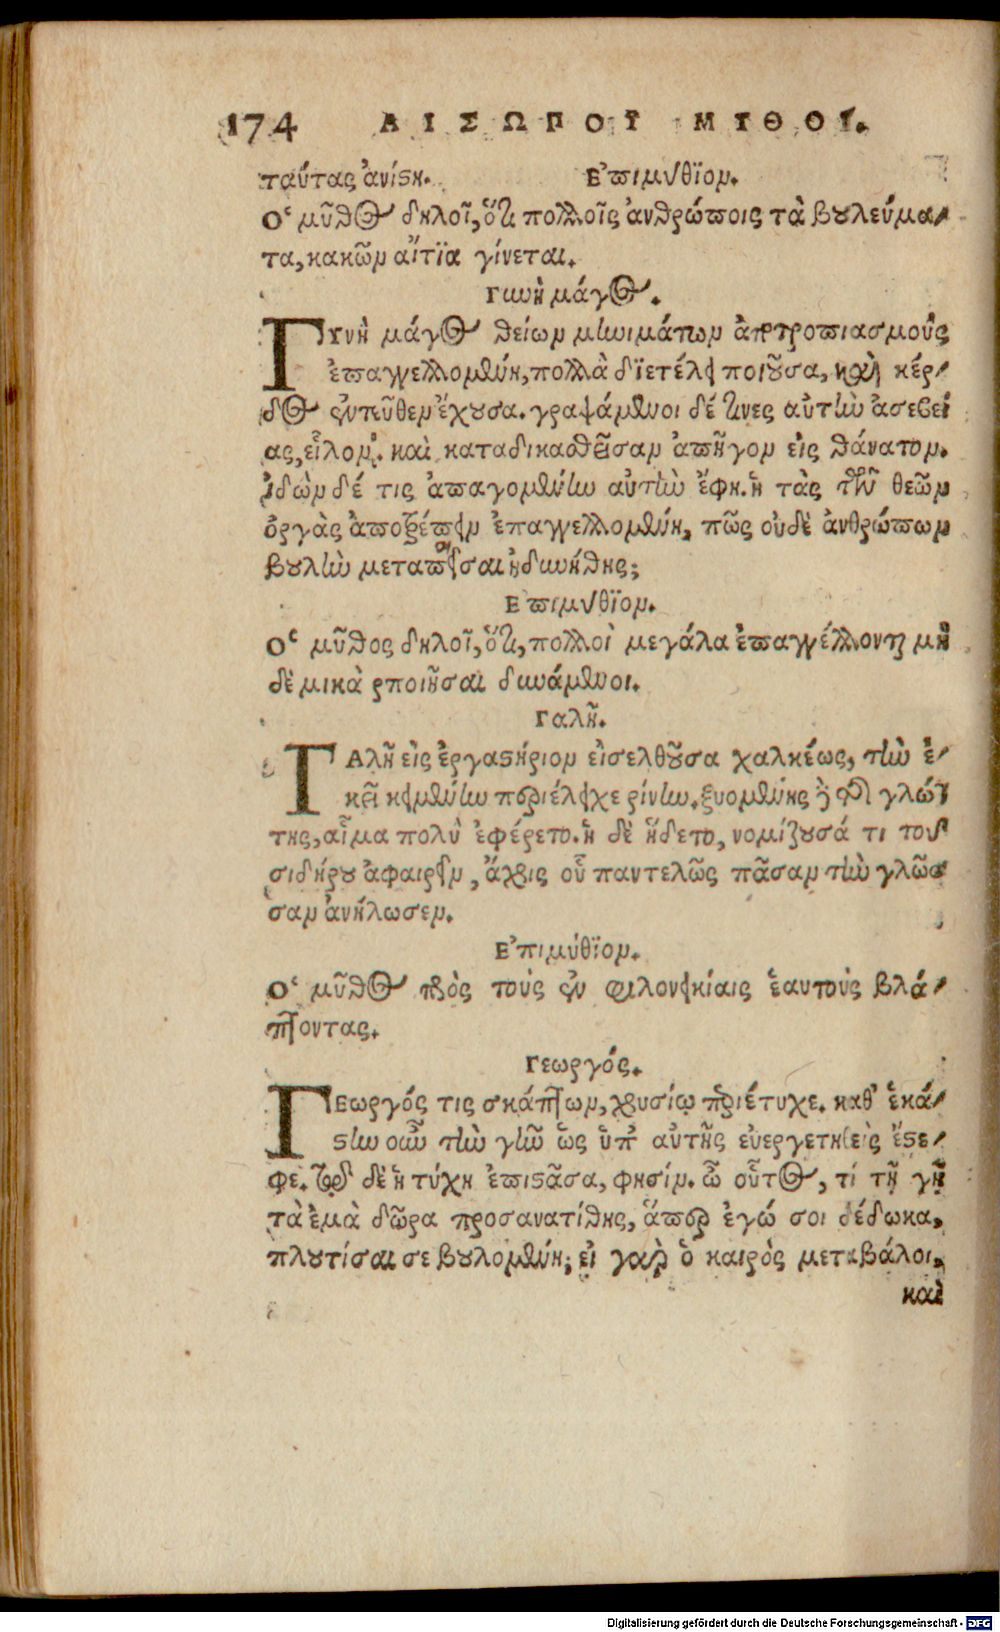 174 ΑΙΣΩΠΟΥ ΜΥΘΟΙ.
ταύτας ἀνίϛη. Ἐπιμύθϊον.
Ὁ μῦθος δηλοῖ, ὅτι πολλοῖς ἀνθρώποις τὰ βουλεύμα-
τα, κακῶν αἴτϊα γίνεται.
Γυνὴ μάγος.
ΓΥνὴ μάγος θείων μηνιμάτων ἀποτροπιασμοὺς
ἐπαγγελλομένη, πολλὰ δϊετέλει ποιοῦσα, καὶ κέρ-
δος ἐντεῦθεν ἔχουσα. γραψάμενοι δέ τινες αὐτὴν ἀσεβεί
ας, εἷλον. καὶ καταδικασθεῖσαν ἀπῆγον εἰς θάνατον.
ἰδὼν δέ τις ἀπαγομένην αὐτὴν ἔφη. ἡ τὰς τῶν θεῶν
ὀργὰς ἀποτρέπειν ἐπαγγελλομένη, πῶς οὐδὲ ἀνθρώπων
βουλὴν μεταπεῖσαι ἠδυνήθης;
Ἐπιμύθϊον.
Ὁ μῦθος δηλοῖ, ὅτι, πολλοὶ μεγάλα ἐπαγγέλλονται μη
δὲ μικὰ ρποιῆσαι δυνάμενοι.
Γαλῆ.
ΓΑλῆ εἰς ἐργαϛήριον εἰσελθοῦσα χαλκέως, τὴν ἐ-
κεῖ κειμένην περιέλειχε ρίνην. ξυομένης δὲ τῆς γλώτ
της, αἷμα πολὺ ἐφέρετο. ἡ δὲ ἥδετο, νομίζουσά τι τοῦ
σιδήρου ἀφαιρεῖν, ἄχρις οὗ παντελῶς πᾶσαν τὴν γλῶσ
σαν ἀνήλωσεν.
Ἐπιμύθϊον.
Ὁ μῦθος πρὸς τοὺς ἐν φιλονεικίαις ἑαυτοὺς βλά-
πτοντας.
Γεωργός.
ΓΕωργός τις σκάπτων, χρυσίῳ περιέτυχε. καθ' ἑκά-
ϛην οὖν τὴν γῆν ὡς ὑπ' αὐτῆς εὐεργετηθεὶς ἔϛε-
φε. τῷ δὲ ἡ τύχη ἐπιϛᾶσα, φησίν. ὦ οὗτος, τί τῇ γῇ
τὰ ἐμὰ δῶρα προσανατίθης, ἅπερ ἐγώ σοι δέδωκα,
πλουτίσαι σε βουλομένη; εἰ γὰρ ὁ καιρὸς μεταβάλοι,
καὶ
Digitalisierung gefördert durch die Deutsche Forschungsgemeinschaft - DFG